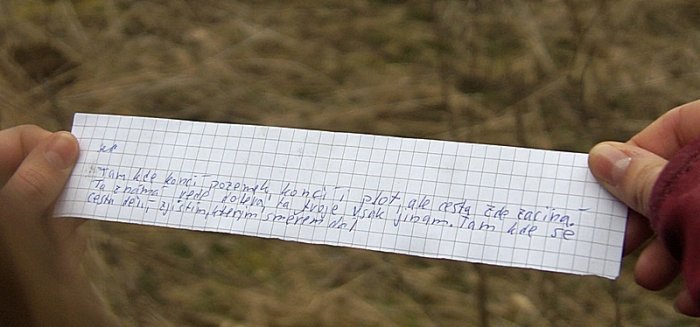 Tam, kde končí pozemek, končí i plot, ale cesta zde začíná.
Ta známá vede doleva, ta tvoje však jinam. Tam kde se
cesta dělí, zjistím, kterým směrem dál